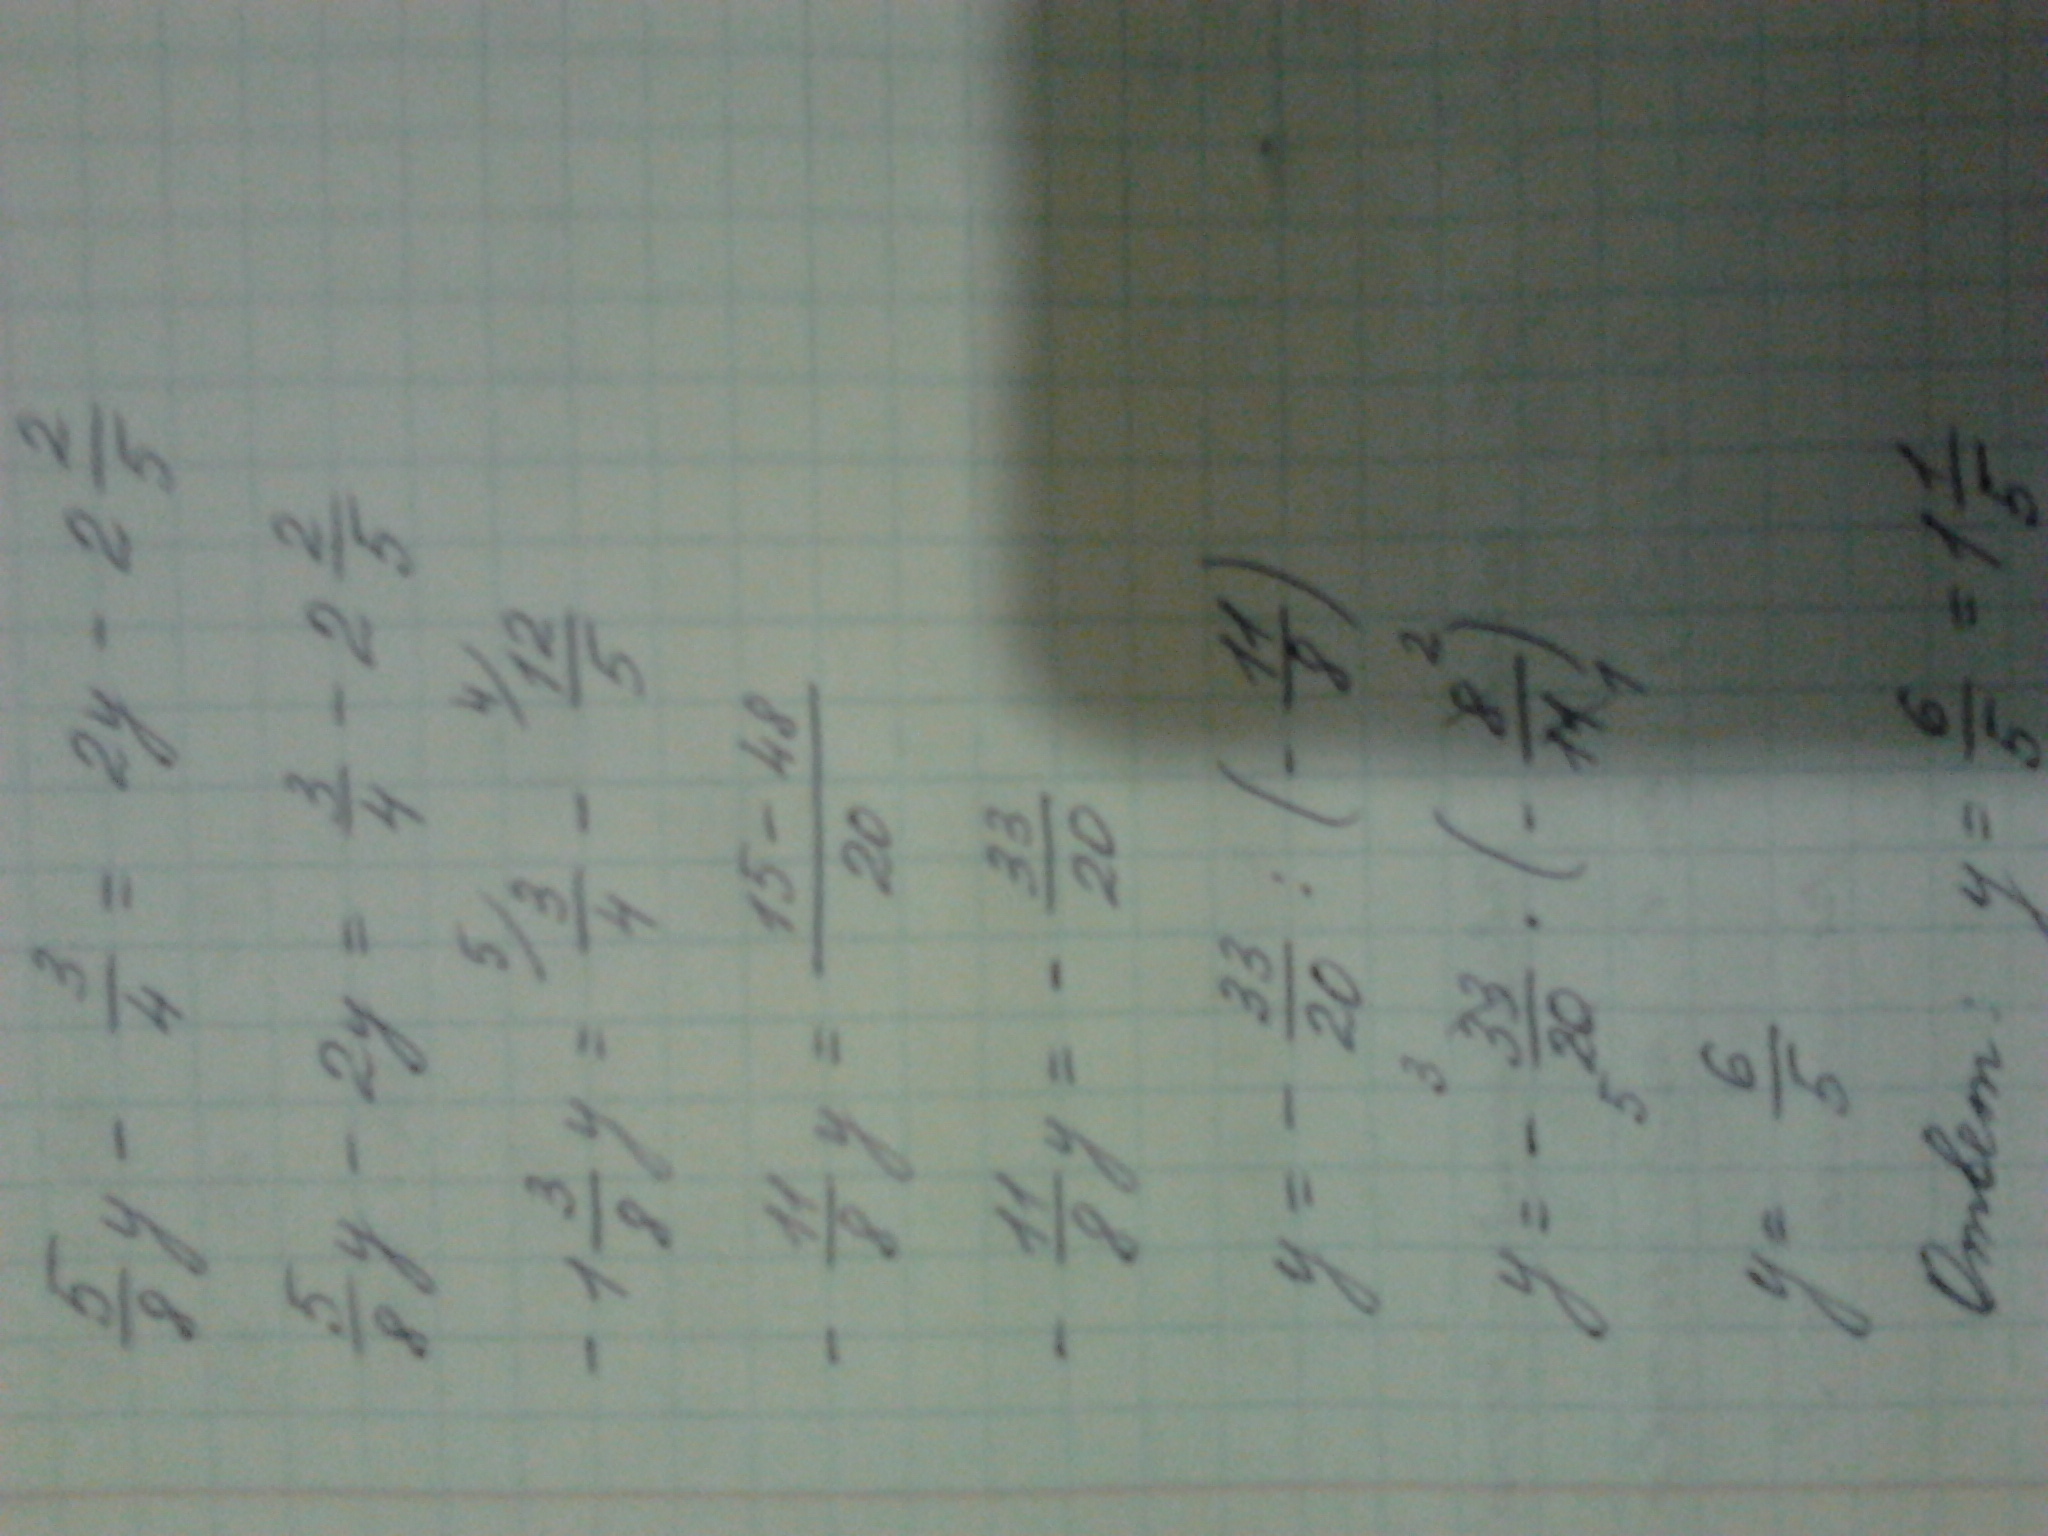 5/8 y - 3/4 = 2y - 2 2/5
5/8 y - 2y = 3/4 - 2 2/5
- 1 3/8 y = 5/ 3/4 - 4/ 12/5
- 11/8 y = (15 - 48)/20
- 11/8 y = - 33/20
y = - 33/20 : (- 11/8)
y = - 3 33/20 5 · (- 8/11 2 1)
y = 6/5
Ответ: y = 6/5 = 1 1/5